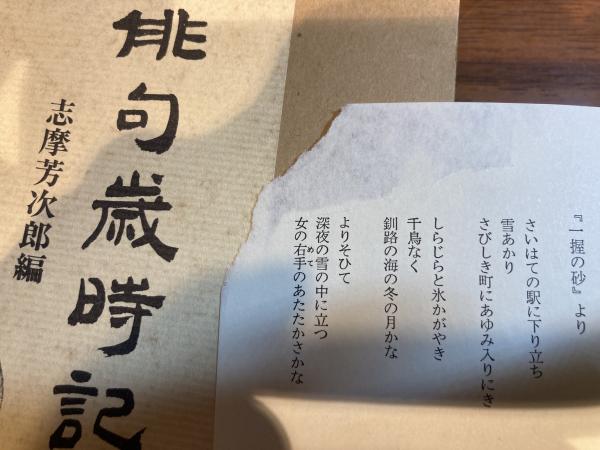 俳句歳時記
志摩芳次郎編
『一握の砂』より
さいはての駅に下り立ち
雪あかり
さびしき町にあゆみ入りにき
しらじらと氷かがやき
千鳥なく
釧路の海の冬の月かな
よりそひて
深夜の雪の中に立つ
女の右手のあたたかさかな
めて